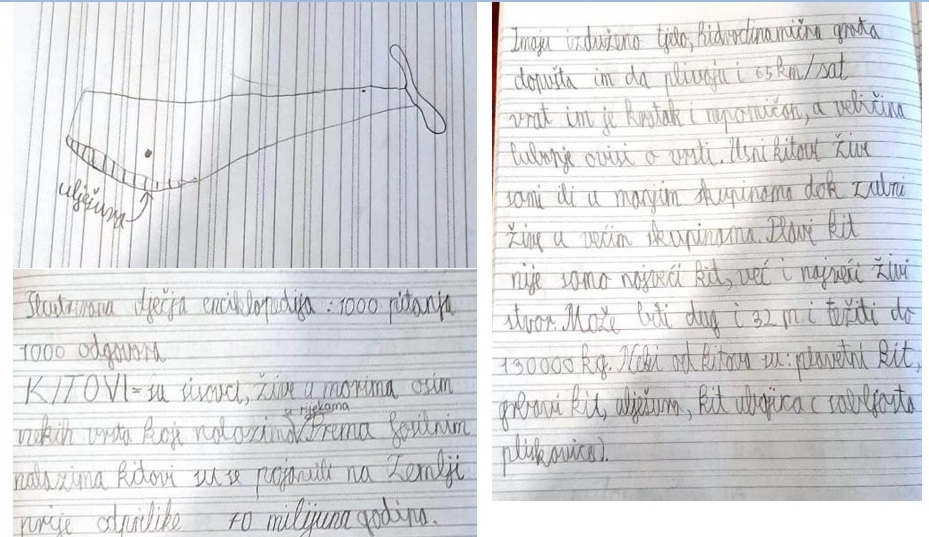 ulješura
Ilustrirana dječja enciklopedija : 1000 pitanja
1000 odgovora
KITOVI = su sisavci, žive u morima osim
u rijekama
nekih vrsta koje nalazimo. Prema fosilnim
nalazima kitovi su se pojavili na Zemlji
prije otprilike 70 milijuna godina.
Imaju izduženo tjelo, hidrodinamična građa
dopušta im da plivaju i 65 km/sat
vrat im je kratak i nepomičan, a veličina
lubanje ovisi o vrsti. Usni kitovi žive
sami ili u manjim skupinama dok zubni
žive u većim skupinama. Plavi kit
nije samo najveći kit, već i najveći živi
stvor. Može biti dug i 32 m i težiti do
130000 kg. Neki od kitova su: plavetni kit,
grbavi kit, ulješura, kit ubojica (sabljasta
pliskavica).